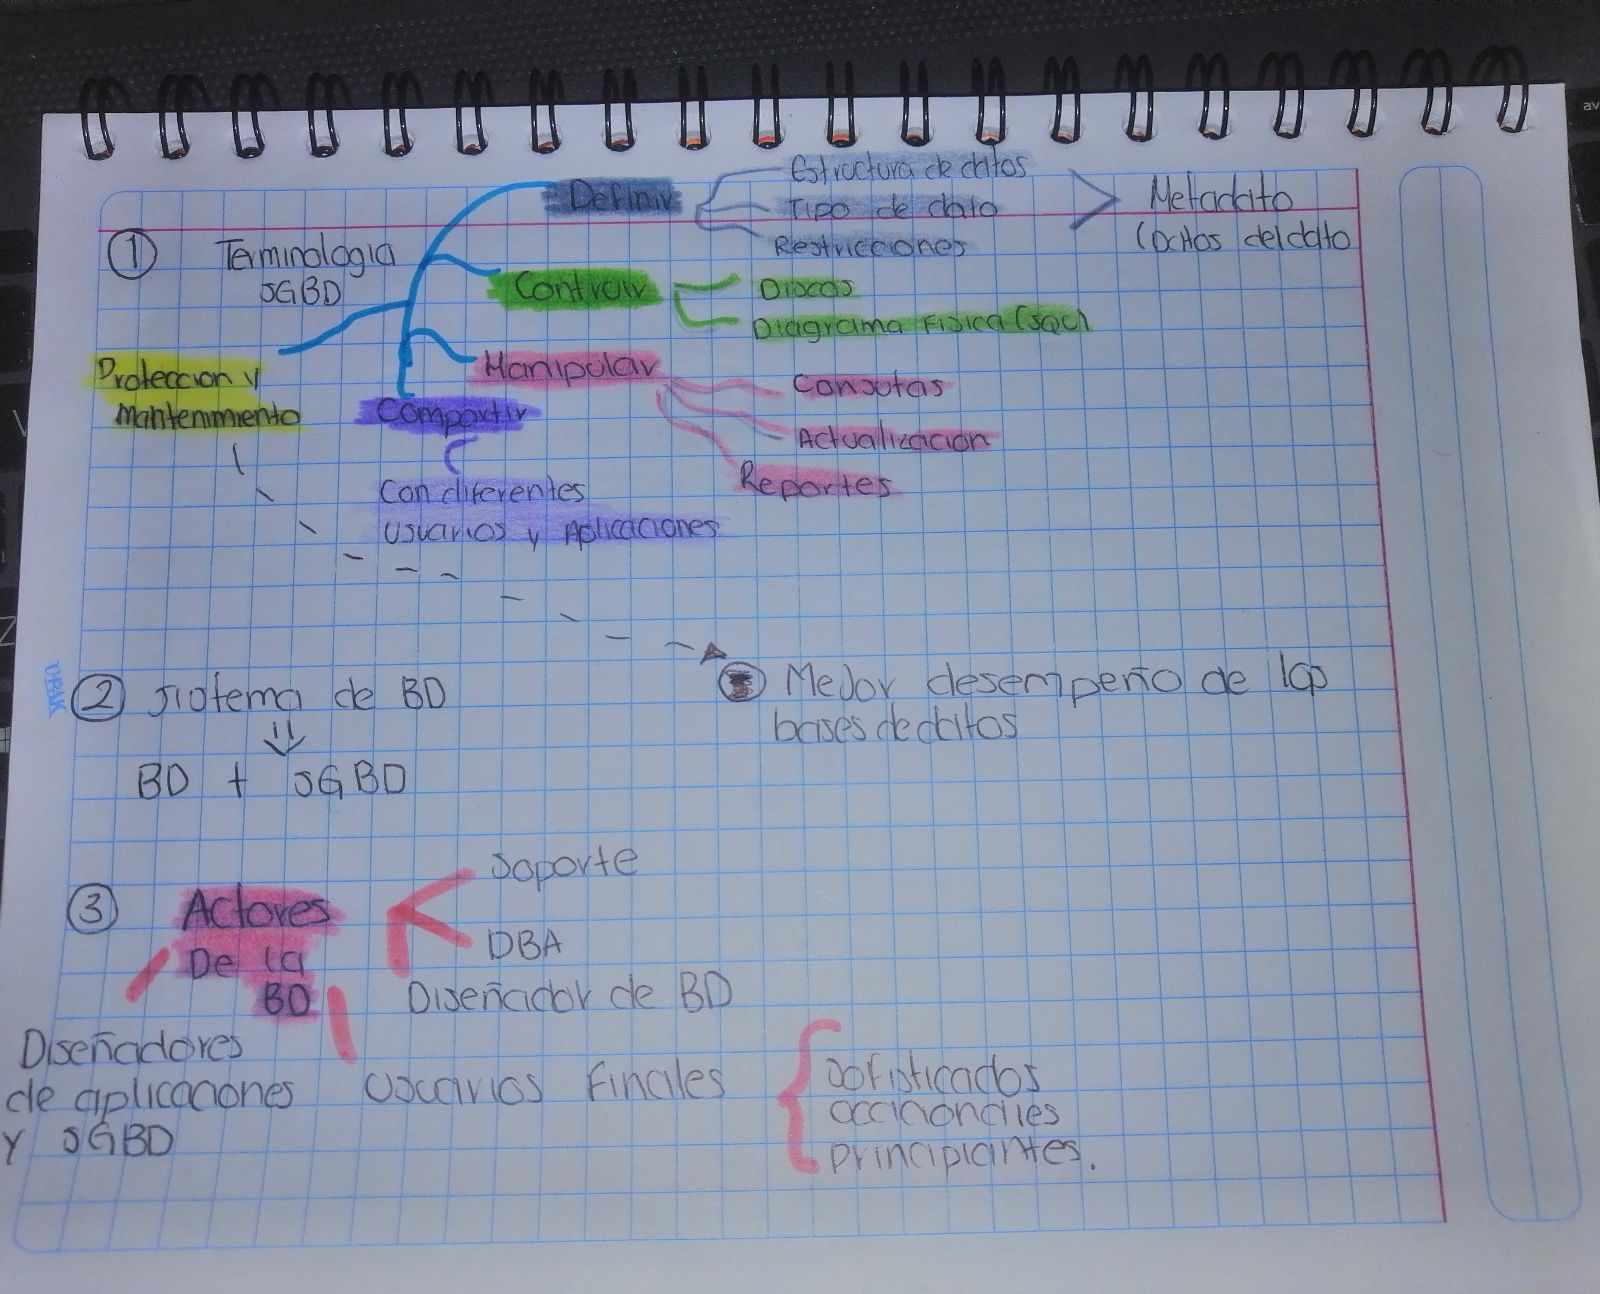 Definir
Estructura de datos
Tipo de dato
Restricciones
Metadato
(Datos del dato
1
Terminologia
SGBD
Contruir
Discos
Diagrama Fisica (SQL)
Manipular
Consutas
Actualizacion
Reportes
Proteccion y
Mantenimiento
Compartir
Con diferentes
Usuarios y Aplicaciones
Mejor desempeño de las
bases de datos
2 Sistema de BD
BD + SGBD
3
Actores
De la
BD
Soporte
DBA
Diseñador de BD
Diseñadores
de aplicaciones
y SGBD
Usuarios Finales
Sofisticados
occacionales
principiantes.